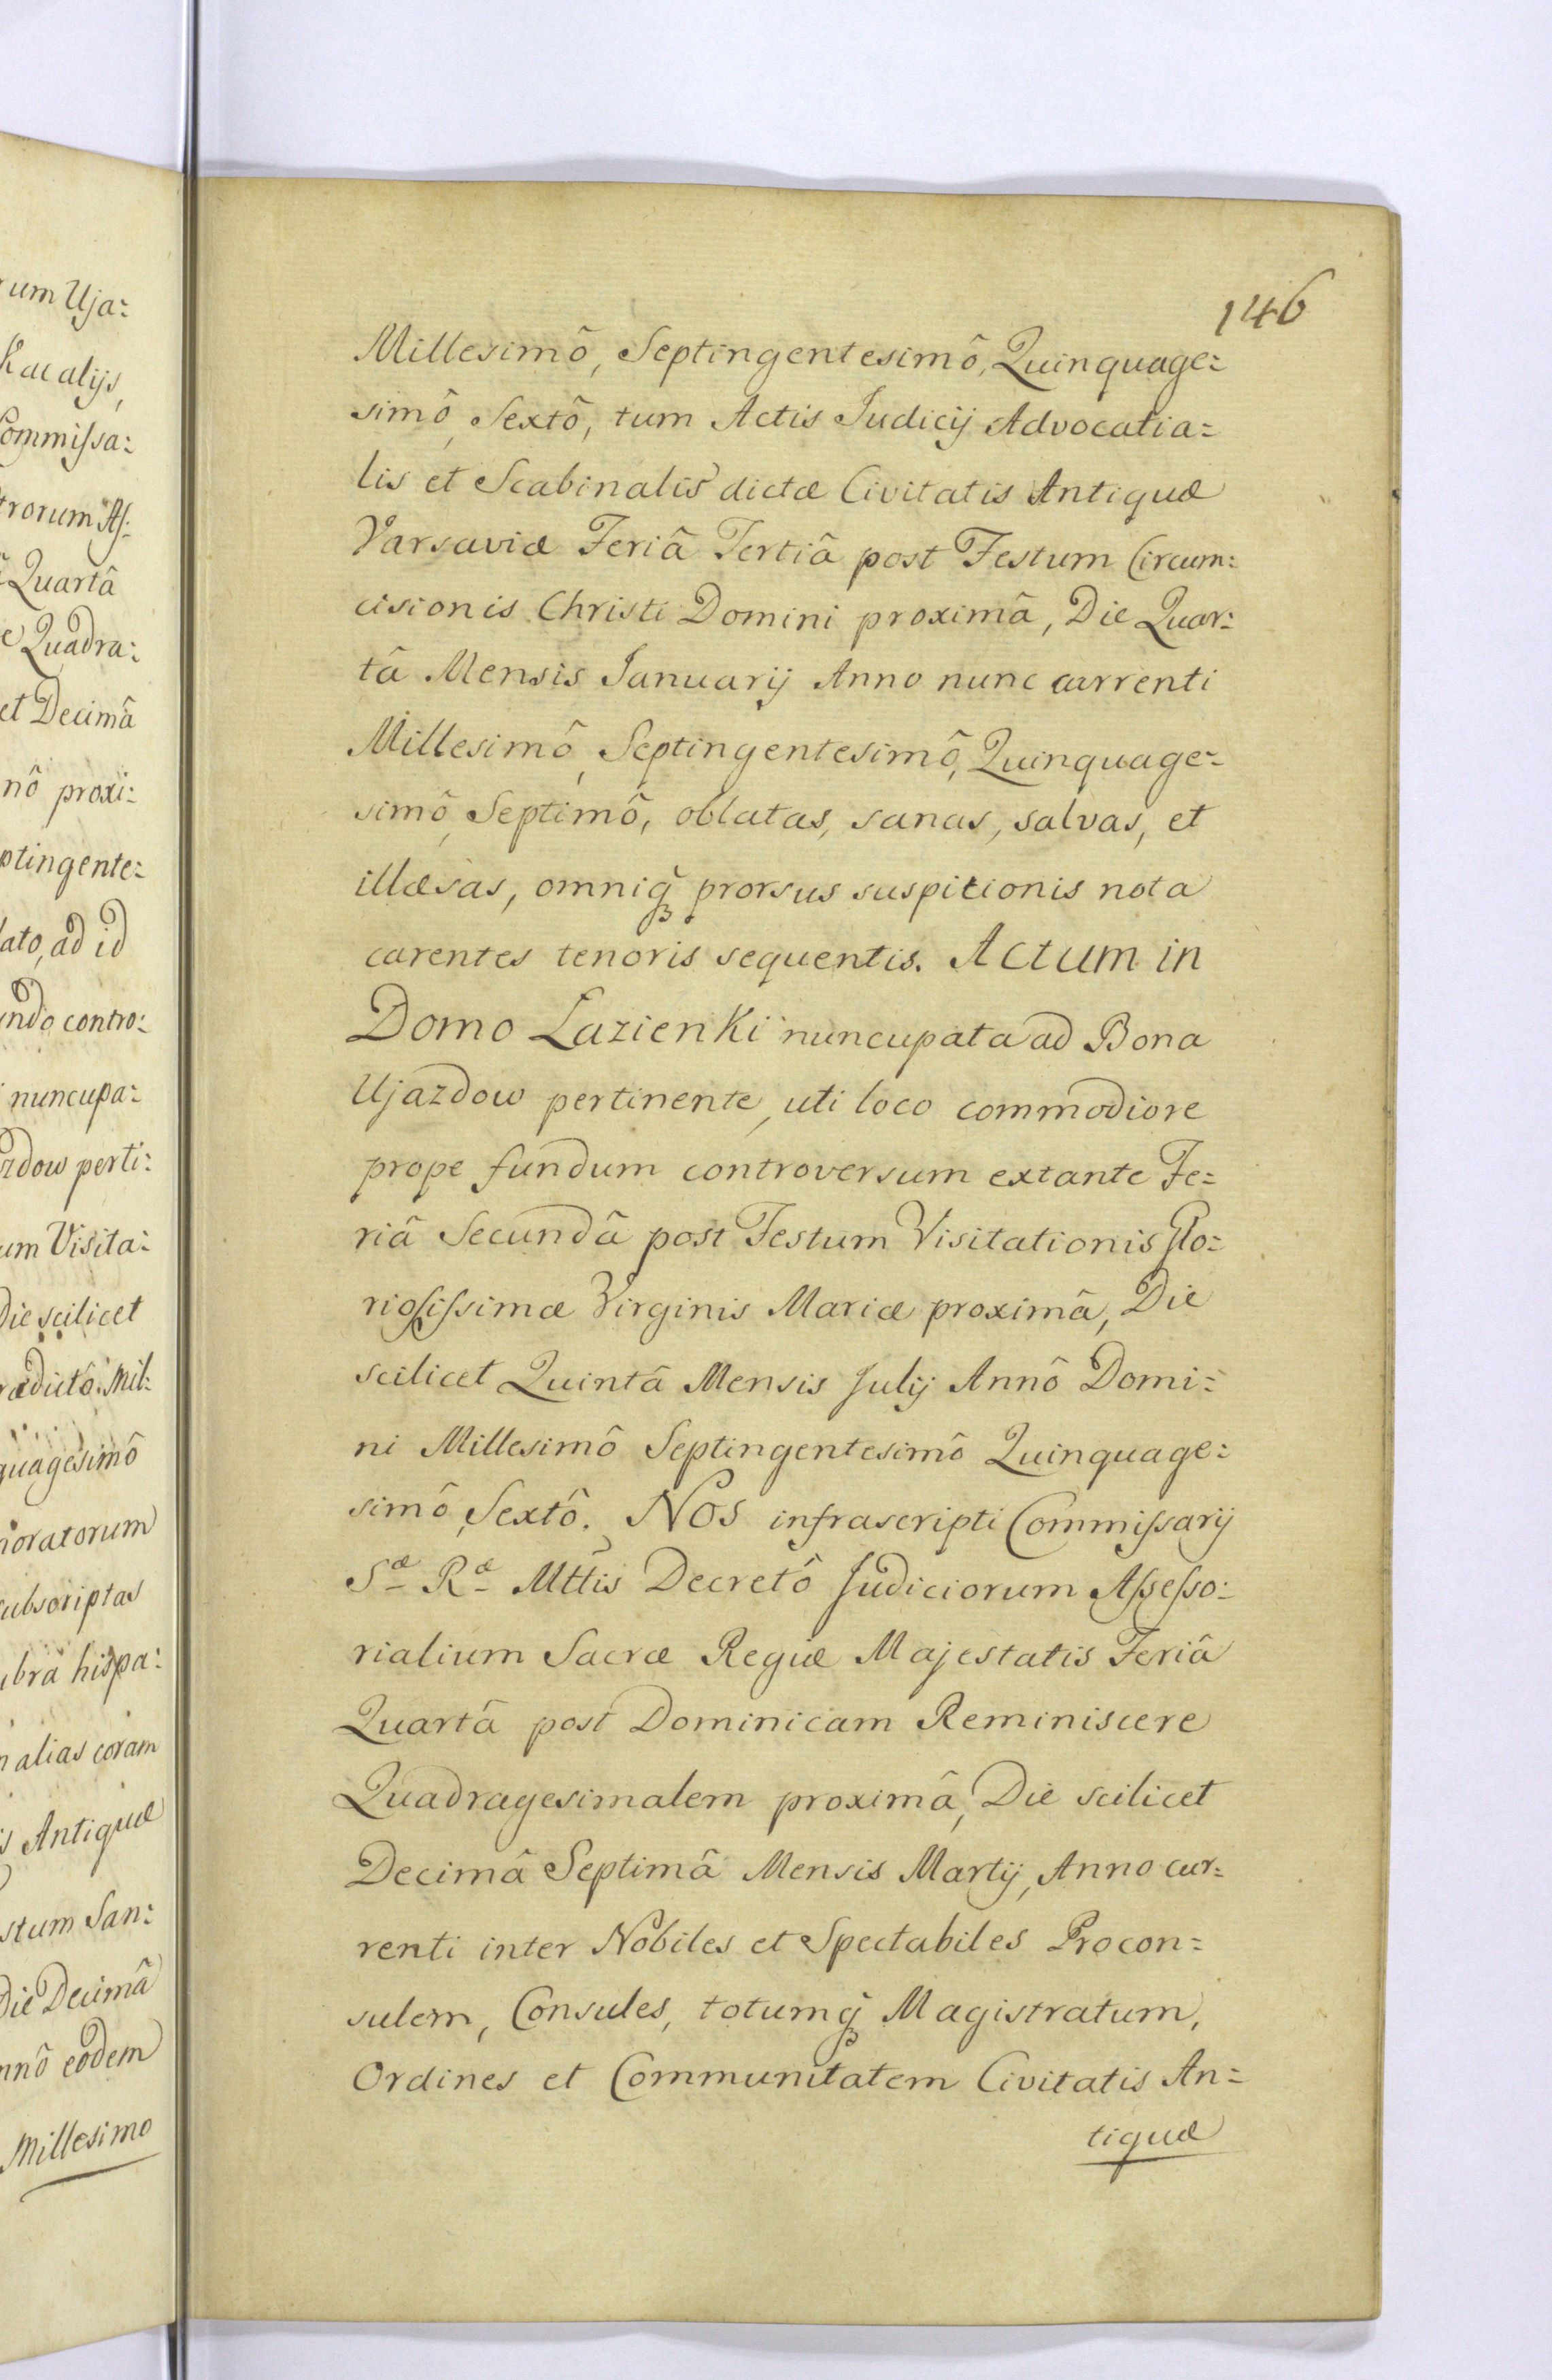 um Uja:
Kac alijs,
Commiſsa:
trorum Aſ:
Quartâ
e Quadra:
et Decimâ
nô proxi:
ptingente:
lato, ad id
undo contro:
nuncupa:
zdow perti:
um Visita:
Die scilicet
rædictô Mil:
quagesimô
moratorum
subscriptas
bra hispa:
n alias coram
is Antiquæ
stum San:
Die Decimâ
nnô eodem
Millesimo
146
Millesimô, Septingentesimô, Quinquage:
simô, Sextô, tum Actis Judicij Advocatia=
lis et Scabinalis dictæ Civitatis Antiquæ
Varsaviæ Feriâ Tertiâ post Festum Circum:
cisionis Christi Domini proximâ, Die Quar:
tâ Mensis Januarij Anno nunc currenti
Millesimô, Septingentesimô, Quinquage=
simô, Septimô, oblatas, sanas, salvas, et
illæsas, omniq̃ prorsus suspicionis nota
carentes tenoris sequentis. Actum in
Domo Lazienki nuncupata ad Bona
Ujazdow pertinente, uti loco commodiore
prope fundum controversum extante Fe=
riâ Secundâ post Festum Visitationis Glo=
rioſiſsimæ Virginis Mariæ proximâ, Die
scilicet Quintâ Mensis Julij Annô Domi=
ni Millesimô Septingentesimô Quinquage:
simô, Sextô. Nos infrascripti Commiſsarij
Sæ Ræ Mttis Decretô Judiciorum Aſseſso:
rialium Sacræ Regiæ Majestatis Feriâ
Quartâ post Dominicam Reminiscere
Quadragesimalem proximâ, Die scilicet
Decimâ Septimâ Mensis Martij, Anno cur=
renti inter Nobiles et Spectabiles Procon=
sulem, Consules, totumq̃ Magistratum,
Ordines et Communitatem Civitatis An=
tiquæ